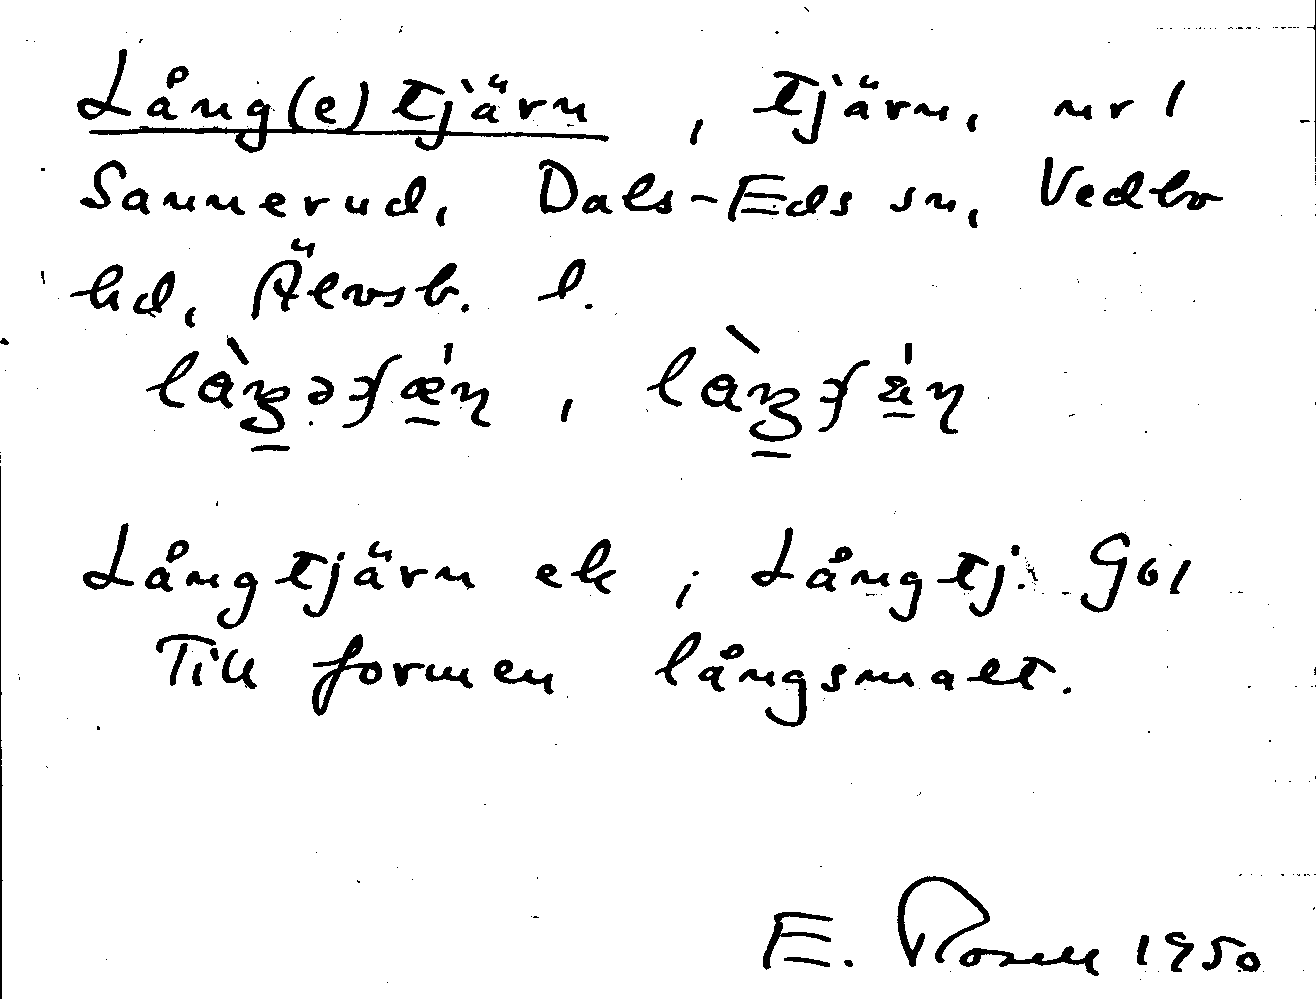 Lång(e)tjärn, tjärn, nr 1
Sannerud, Dals-Eds sn, Vedbo
hd, Älvsb. l.
Långtjärn ek; Långtj. Gol
Till formen långsmalt.
E. Rosell 1950